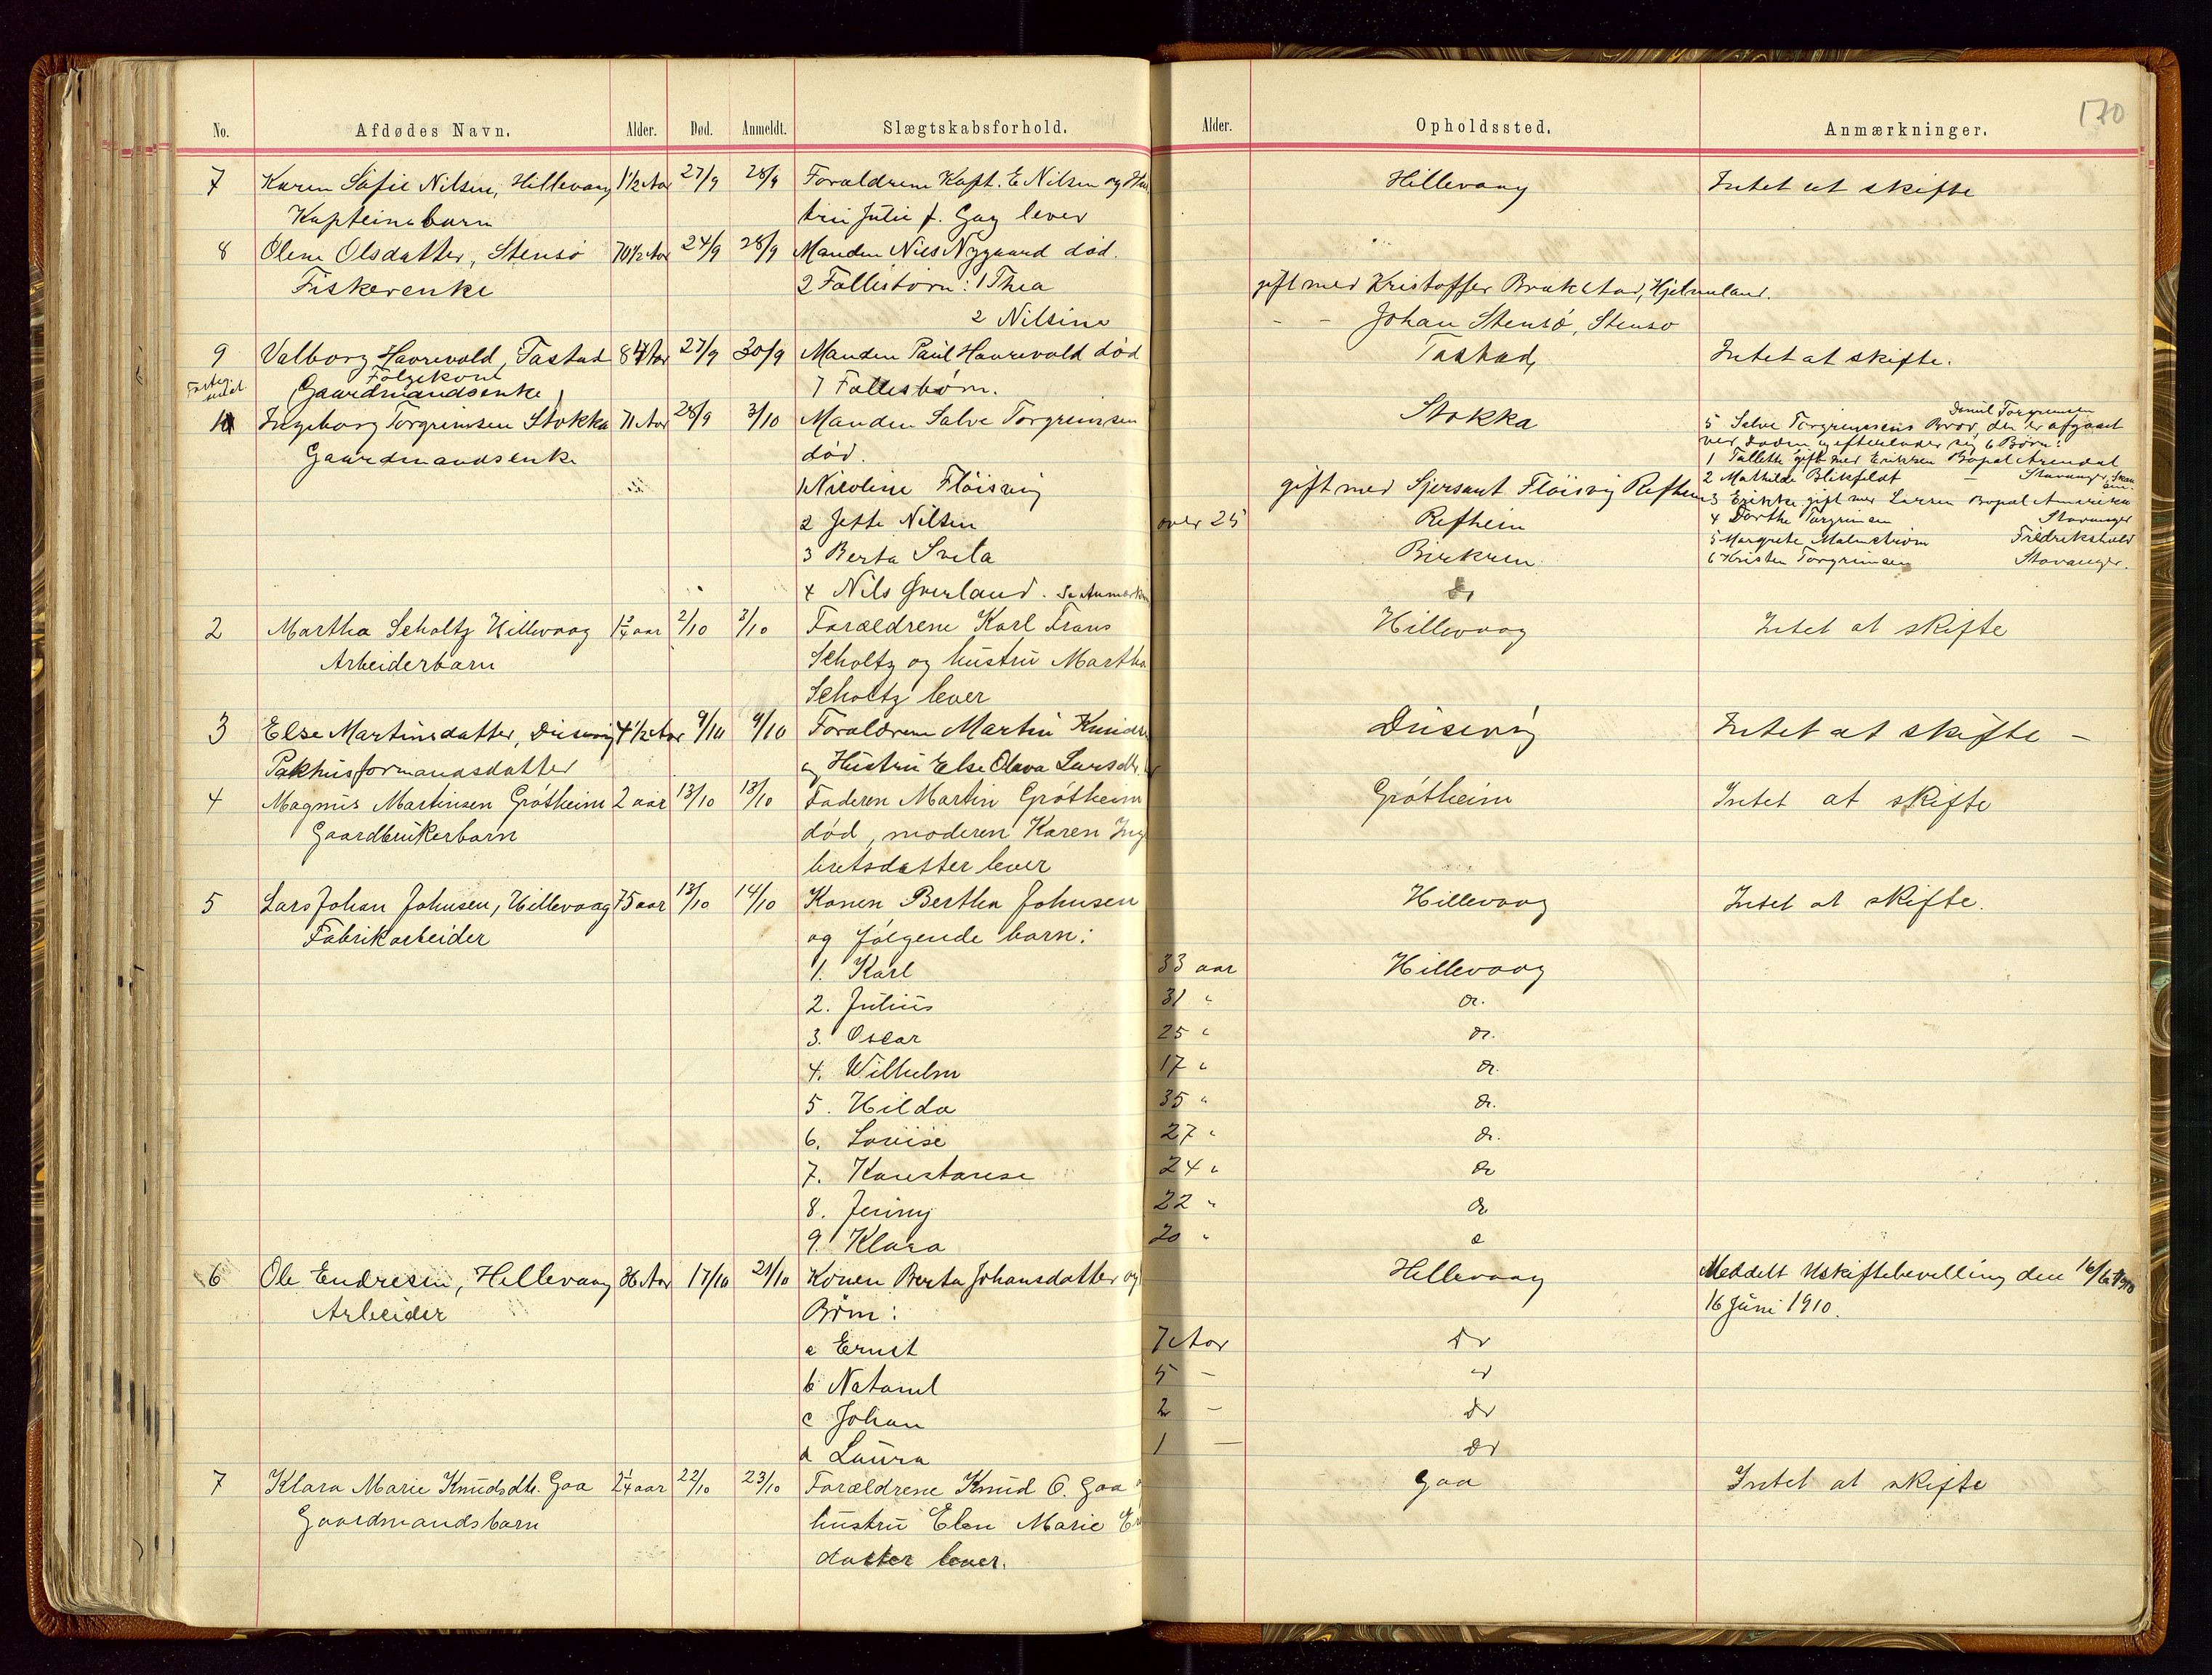 170
No. Afdødes Navn. Alder. Død. Anmeldt. Slægtskabsforhold. Alder. Opholdssted. Anmærkninger.
7 Karen Sofie Nilsen, Hillevaag 1½ Aar 27/9 28/9 Forældrene Kapt. E Nilsen og Hus Hillevaag Intet at skifte
Kapteinsbarn tru Julie f. Gay lever
8 Olene Olsdatter, Stensø 70½ Aar 24/9 28/9 Manden Nils Nygaard død.
Fiskerenke 2 Fællesbørn: 1 Thea gift med Kristoffer Brakstad, Hjelmeland.
2 Nilsine - - Johan Stensø, Stensø
9 Valborg Haarevold, Tastad 84 Aar 27/9 30/9 Manden Paul Haarevold død Tastad, Intet at skifte.
Følgekone
Gaardmandsenke 7 Fællesbørn.
1 Ingeborg Torgrimsen Stokka 71 Aar 28/9 3/10 Manden Salve Torgrimsen Stokka
Gaardmandsenke død.
Daniel Torgrimsen
5 Salve Torgrimsens Bror, der er afgaaet
ved Døden og efterlader sig 6 Børn:
1 Tallette gift med Eriksen Bopæl Arendal
2 Mathilde Blikfeldt — Stavanger
3 Erikke gift med Larsen Bopæl Amerika
4 Dorthe Torgrimsen Stavanger
5 Margrete Malmstrøm Fredrikshald
6 Kristen Torgrimsen Stavanger.
1 Nicoline Fløisvig gift med Sjersant Fløisvig Refheim
2 Jette Nilsen over 25 Refheim
3 Berta Svela Birkrem
4 Nils Gverland. Se Anmærkn do
2 Martha Scholtz Hillevaag 1¾ aar 2/10 3/10 Forældrene Karl Frans Hillevaag Intet at skifte
Arbeiderbarn Scholtz og hustru Martha
Scholtz lever
3 Else Martinsdatter, Dusevig 4½ Aar 9/10 9/10 Forældrene Martin Knudsen Dusevig Intet at skifte —
Pakhusformandsdatter og Hustru Else Olava Larsdtr.
4 Magnus Martinsen Grøtheim 2 aar 13/10 13/10 Faderen Martin Grøtheim Grøtheim Intet at skifte
Gaardbrukerbarn død, moderen Karen Ing
bretsdatter lever
5 Lars Johan Johnsen, Hillevaag 75 aar 13/10 14/10 Konen Berthe Johnsen Hillevaag Intet at skifte.
Fabrikarbeider og følgende barn:
1. Karl 33 aar Hillevaag
2. Julius 31 " do.
3. Oscar 25 " do.
4. Wilhelm 17 " do.
5. Hilda 35 " do.
6. Lovise 27 " do.
7. Konstanse 24 " do
8. Jenny 22 " do
9. Klara 20 " do
6 Ole Endresen, Hillevaag 36 Aar 17/10 21/10 Konen Berta Johansdatter og Hillevaag Meddelt Uskiftebevilling den 16/6 1910
Arbeider Børn: 16 Juni 1910.
a Ernst 7 Aar do
b Natanel 5 — do
c Johan 2 — do
d Laura 1 — do
7 Klara Marie Knudsdtr. Gaa 2¼ aar 22/10 23/10 Forældrene Knud O. Gaa Gaa Intet at skifte
Gaardmandsbarn hustru Elen Marie
datter lever.